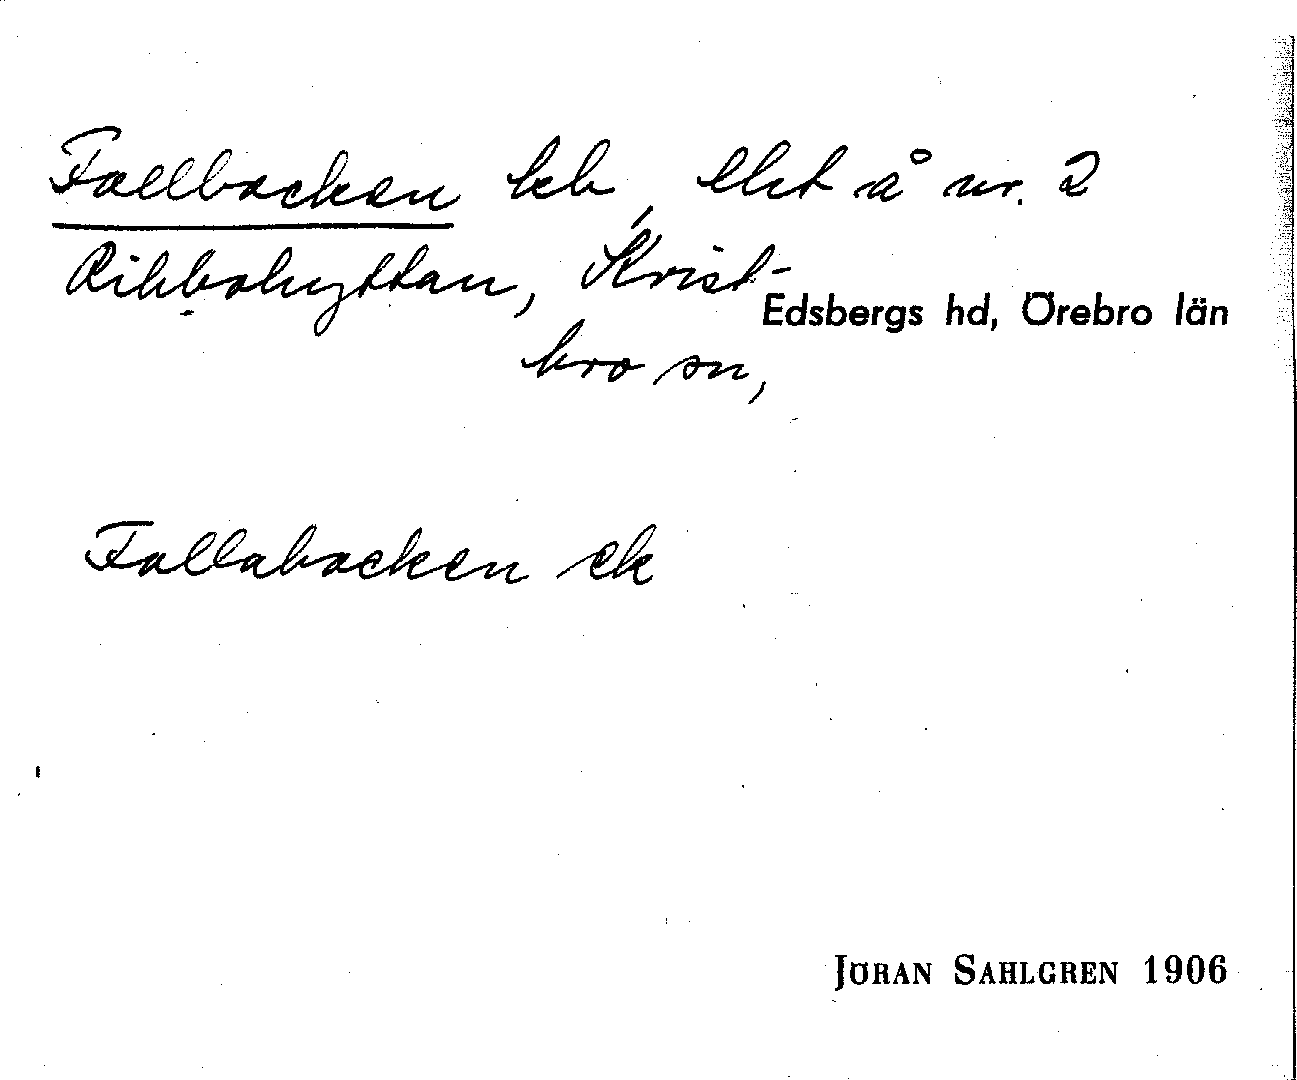 Fallbacken lcb, lht å nr. 2
Ribbohyttan, Krist-
Edsbergs hd, Örebro län
bro sn,
Fallabacken ek
JÖRAN SAHLGREN 1906